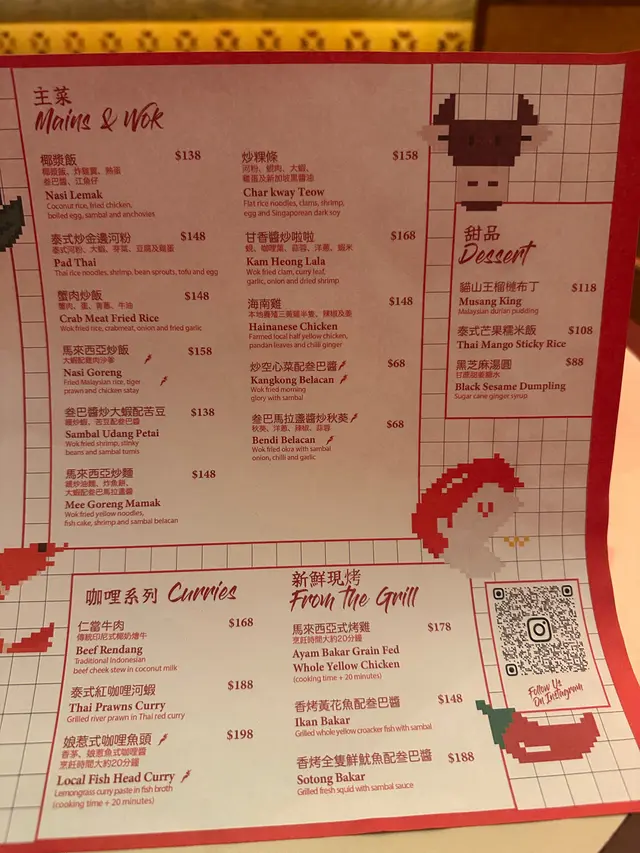 主菜
Mains & Wok
椰漿飯 $138
椰漿飯、炸雞翼、熟蛋
叁巴醬、江魚仔
Nasi Lemak
Coconut rice, fried chicken,
boiled egg, sambal and anchovies
泰式炒金邊河粉 $148
泰式河粉、大蝦、芽菜、豆腐及雞蛋
Pad Thai
Thai rice noodles, shrimp, bean sprouts, tofu and egg
蟹肉炒飯 $148
蟹肉、蛋、青蔥、牛油
Crab Meat Fried Rice
Wok fried rice, crabmeat, onion and fried garlic
馬來西亞炒飯 $158
大蝦配雞肉沙爹
Nasi Goreng
Fried Malaysian rice, tiger
prawn and chicken satay
叁巴醬炒大蝦配苦豆 $138
Sambal Udang Petai
Wok fried shrimp, stinky
beans and sambal tumis
馬來西亞炒麵 $148
大蝦配叁巴馬拉盞醬
Mee Goreng Mamak
Wok fried yellow noodles,
fish cake, shrimp and sambal belacan
炒粿條 $158
雞蛋及新加坡黑醬油
Char kway Teow
Flat rice noodles, clams, shrimp,
egg and Singaporean dark soy
甘香醬炒啦啦 $168
蜆、咖喱葉、蒜蓉、洋蔥、蝦米
Kam Heong Lala
Wok fried clam, curry leaf,
garlic, onion and dried shrimp
海南雞 $148
本地養殖三黃雞半隻、辣椒及薑
Hainanese Chicken
Farmed local half yellow chicken,
pandan leaves and chilli ginger
炒空心菜配叁巴醬 $68
Kangkong Belacan
Wok fried morning
glory with sambal
叁巴馬拉盞醬炒秋葵 $68
秋葵、洋蔥、辣椒、蒜蓉
Bendi Belacan
Wok fried okra with sambal
onion, chilli and garlic
甜品
Dessert
貓山王榴槤布丁 $118
Musang King
Malaysian durian pudding
泰式芒果糯米飯 $108
Thai Mango Sticky Rice
黑芝麻湯圓 $88
甘蔗甜薑糖水
Black Sesame Dumpling
Sugar cane ginger syrup
咖哩系列 Curries
仁當牛肉 $168
傳統印尼式椰奶燴牛
Beef Rendang
Traditional Indonesian
beef cheek stew in coconut milk
泰式紅咖哩河蝦 $188
Thai Prawns Curry
Grilled river prawn in Thai red curry
娘惹式咖哩魚頭 $198
香茅、娘惹魚式咖哩醬
烹飪時間大約20分鐘
Local Fish Head Curry
Lemongrass curry paste in fish broth
(cooking time + 20 minutes)
新鮮現烤
From the Grill
馬來西亞式烤雞 $178
烹飪時間大約20分鐘
Ayam Bakar Grain Fed
Whole Yellow Chicken
(cooking time + 20 minutes)
香烤黃花魚配叁巴醬 $148
Ikan Bakar
Grilled whole yellow croacker fish with sambal
香烤全隻鮮魷魚配叁巴醬 $188
Sotong Bakar
Grilled fresh squid with sambal sauce
Follow Us
On Instagram